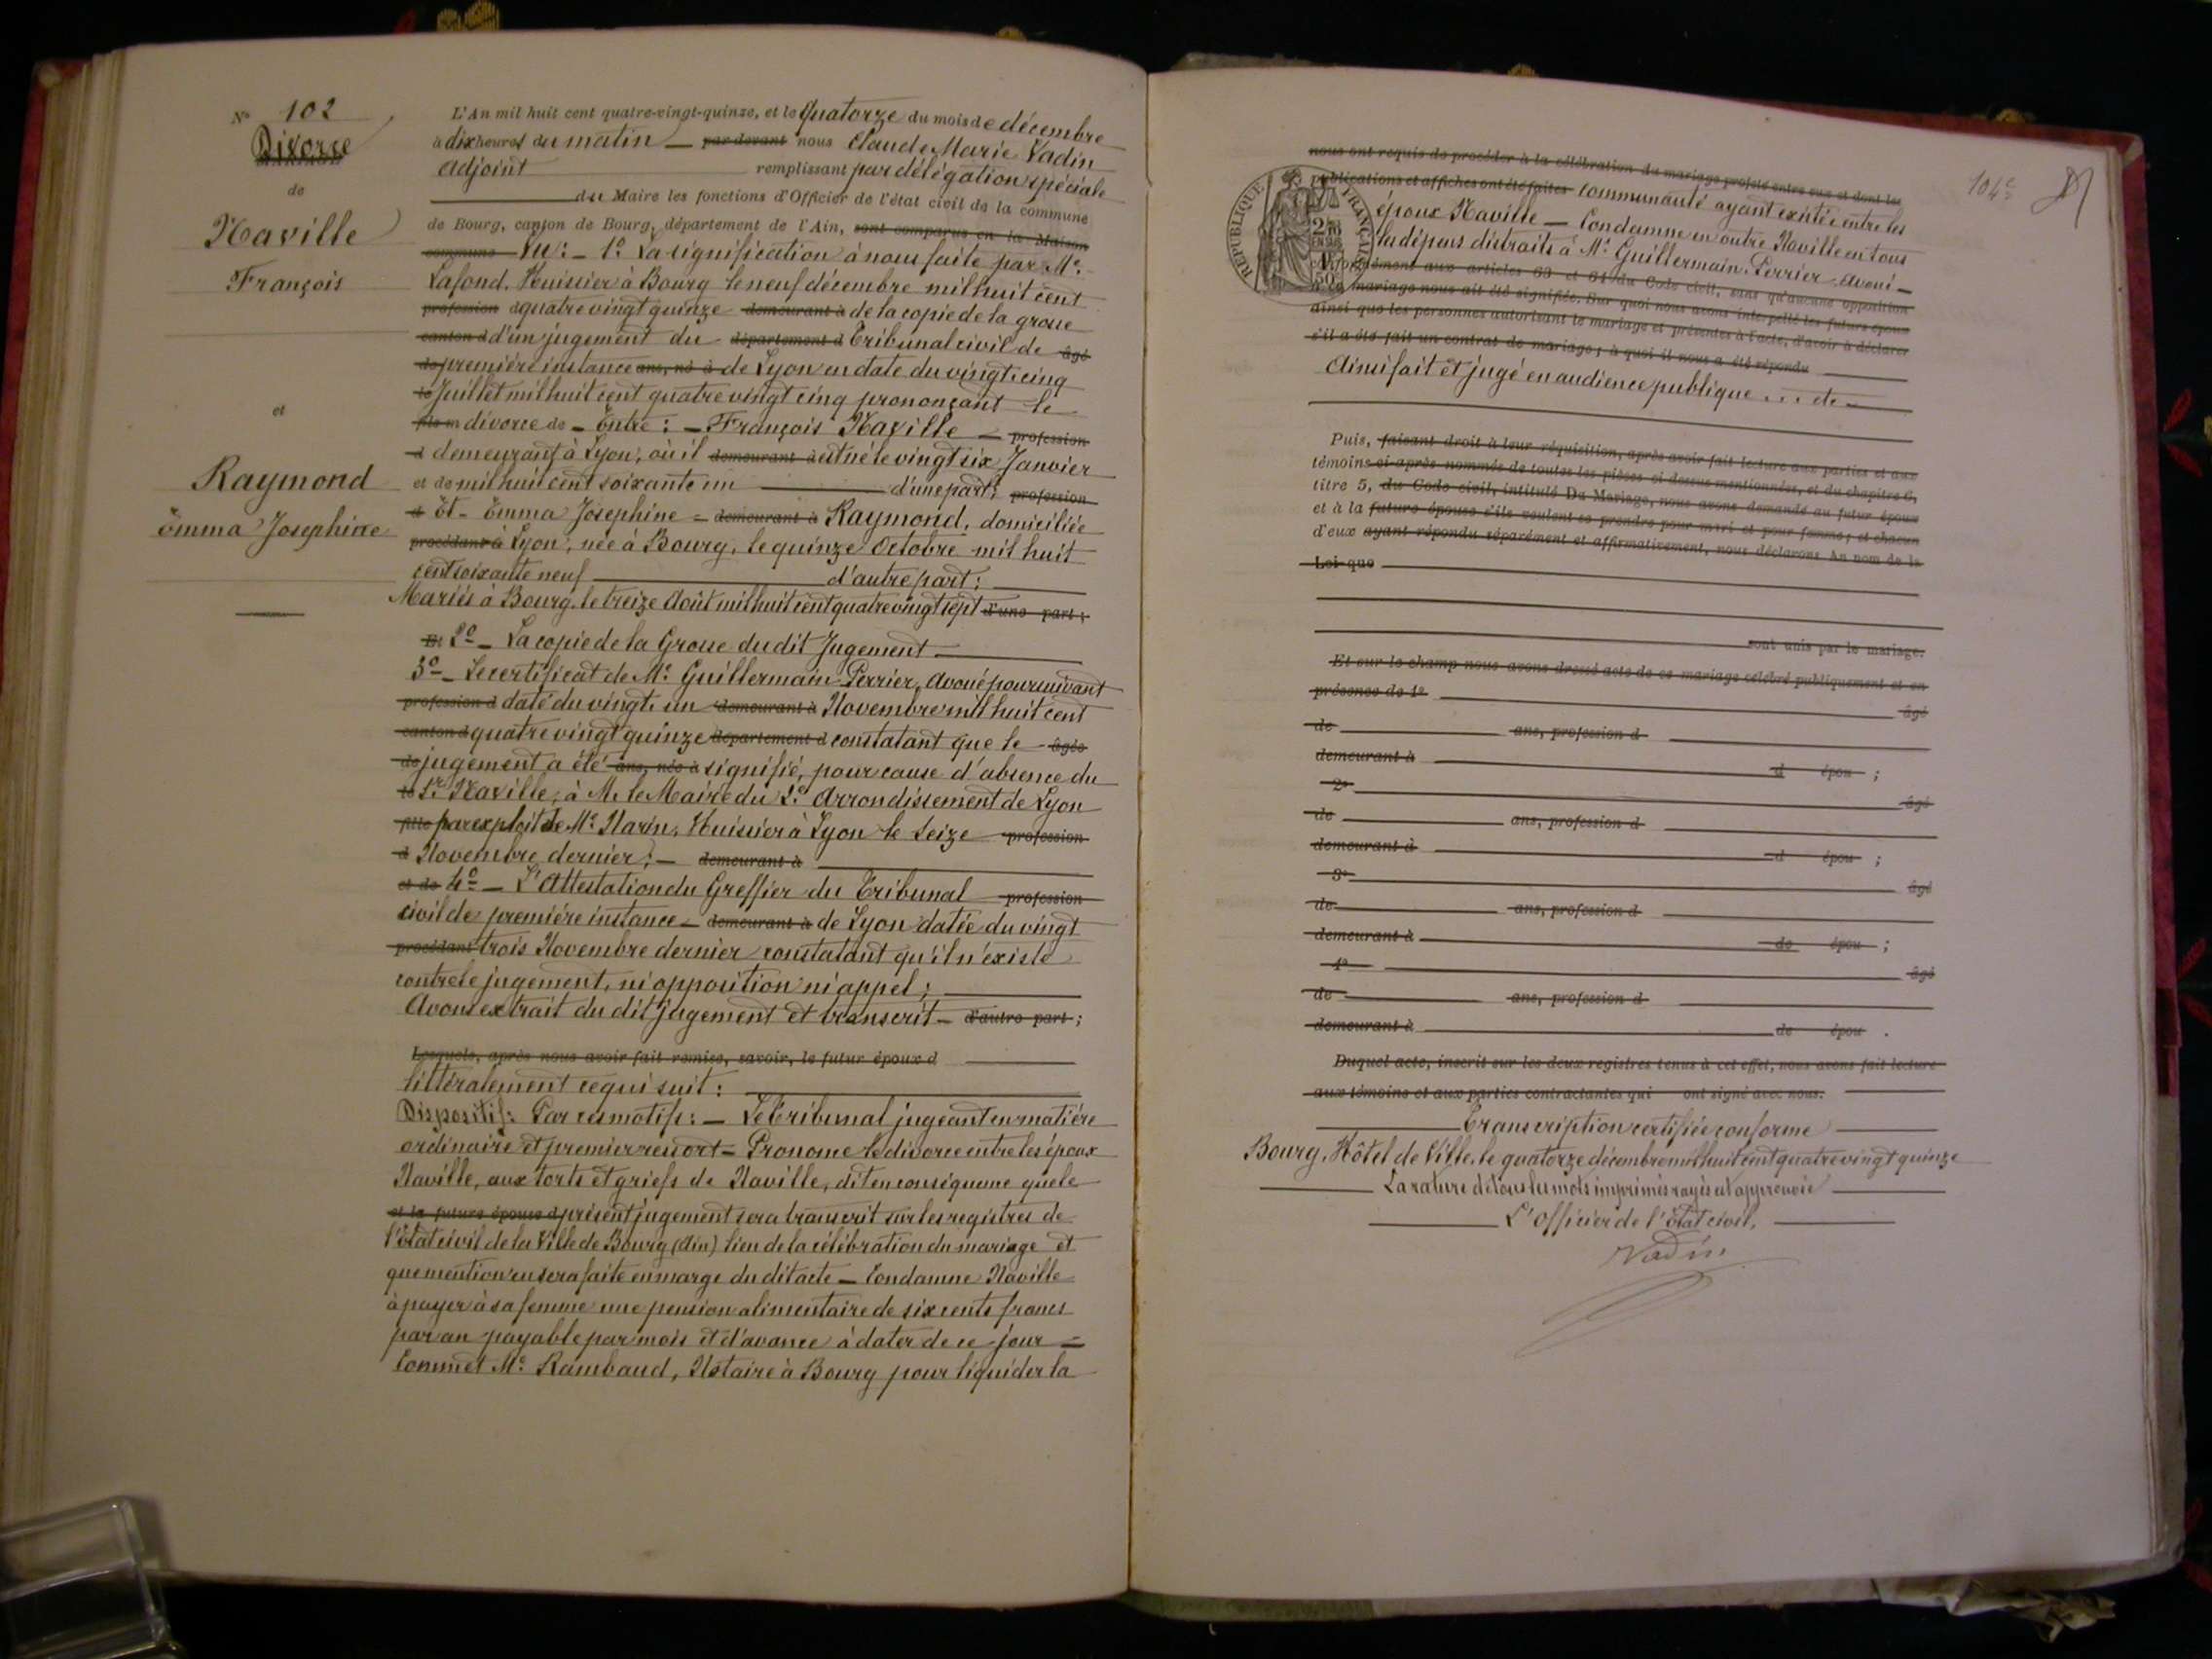 N° 102
Divorce
de
Naville
François
et
Raymond
Emma Josephine
L'An mil huit cent quatre-vingt-quinze, et le Quatorze du mois de décembre
à dix heures du matin — par-devant nous Claude Marie Vadin
Adjoint remplissant par délégation spéciale
du Maire les fonctions d'Officier de l'état civil de la commune
de Bourg, canton de Bourg, département de l'Ain, sont comparus en la Maison
commune Vu : — 1° La signification à nous faite par Me
Lafond, Huissier à Bourg le neuf décembre mil huit cent
profession d quatre vingt quinze demeurant à de la copie de la grosse
canton d d'un jugement du département d Tribunal civil de âgé
de première instance ans, né à de Lyon en date du vingt cinq
le Juillet mil huit cent quatre vingt cinq prononçant le
fils m divorce de — Entre : — François Naville — profession
d demeurant à Lyon, où il demeurant à est né le vingt six Janvier
et de mil huit cent soixante un — d'une part ; profession
d Et — Emma Josephine — demeurant à Raymond, domiciliée
procédant à Lyon, née à Bourg, le quinze Octobre mil huit
cent soixante neuf — d'autre part ;
Mariés à Bourg, le treize Août mil huit cent quatre vingt sept d'une part ;
Et 2° — La copie de la Grosse du dit Jugement —
3° — Le certificat de Me Guillermain-Perrier, Avoué poursuivant
profession d daté du vingt un demeurant à Novembre mil huit cent
canton d quatre vingt quinze département d constatant que le âgée
de jugement a été ans, née à signifié, pour cause d'absence du
le Sr Naville, à M. le Maire du 2e Arrondissement de Lyon
fille par exploit de Me Marin, Huissier à Lyon le Seize profession
d Novembre dernier ; — demeurant à
et de 4° — L'Attestation du Greffier du Tribunal profession
civil de première instance — demeurant à de Lyon datée du vingt
procédant trois Novembre dernier constatant qu'il n'existe
contre le jugement, ni opposition ni appel ;
Avons extrait du dit jugement et transcrit — d'autre part ;
Lesquels, après nous avoir fait remise, savoir, le futur époux d
littéralement ce qui suit :
Dispositif : Par ces motifs : — Le Tribunal jugeant en matière
ordinaire et premier ressort — Prononce le divorce entre les époux
Naville, aux torts et griefs de Naville, dit en conséquence que le
et la future épouse d présent jugement sera transcrit sur les registres de
l'Etat civil de la Ville de Bourg (Ain) lieu de la célébration du mariage et
que mention en sera faite en marge du dit acte — Condamne Naville
à payer à sa femme une pension alimentaire de six cents francs
par an payable par mois et d'avance à dater de ce jour —
Commet Me Rambaud, Notaire à Bourg pour liquider la
104e
nous ont requis de procéder à la célébration du mariage projeté entre eux et dont les
publications et affiches ont été faites communauté ayant existé entre les
époux Naville — Condamne en outre Naville en tous
les dépens distraits à Me Guillermain-Perrier — avoué —
RÉPUBLIQUE FRANÇAISE
conformément aux articles 63 et 64 du Code civil, sans qu'aucune opposition
mariage nous ait été signifiée. Sur quoi nous avons interpellé les futurs époux
ainsi que les personnes autorisant le mariage et présentes à l'acte, d'avoir à déclarer
s'il a été fait un contrat de mariage ; à quoi il nous a été répondu
Ainsi fait et jugé en audience publique ... etc —
Puis, faisant droit à leur réquisition, après avoir fait lecture aux parties et aux
témoins ci-après nommés de toutes les pièces ci-dessus mentionnées, et du chapitre 6,
titre 5, du Code civil, intitulé Du Mariage, nous avons demandé au futur époux
et à la future épouse s'ils veulent se prendre pour mari et pour femme ; et chacun
d'eux ayant répondu séparément et affirmativement, nous déclarons Au nom de la
Loi que
sont unis par le mariage.
Et sur le champ nous avons dressé acte de ce mariage célébré publiquement et en
présence de 1° âgé
de ans, profession d
demeurant à d épou ;
2° âgé
de ans, profession d
demeurant à d épou ;
3° âgé
de ans, profession d
demeurant à de épou ;
4° âgé
de ans, profession d
demeurant à de épou .
Duquel acte, inscrit sur les deux registres tenus à cet effet, nous avons fait lecture
aux témoins et aux parties contractantes qui ont signé avec nous.
Transcription certifiée conforme
Bourg, Hôtel de Ville, le quatorze décembre mil huit cent quatre vingt quinze
La rature de tous les mots imprimés rayés est approuvée
L'Officier de l'Etat civil,
Vadin